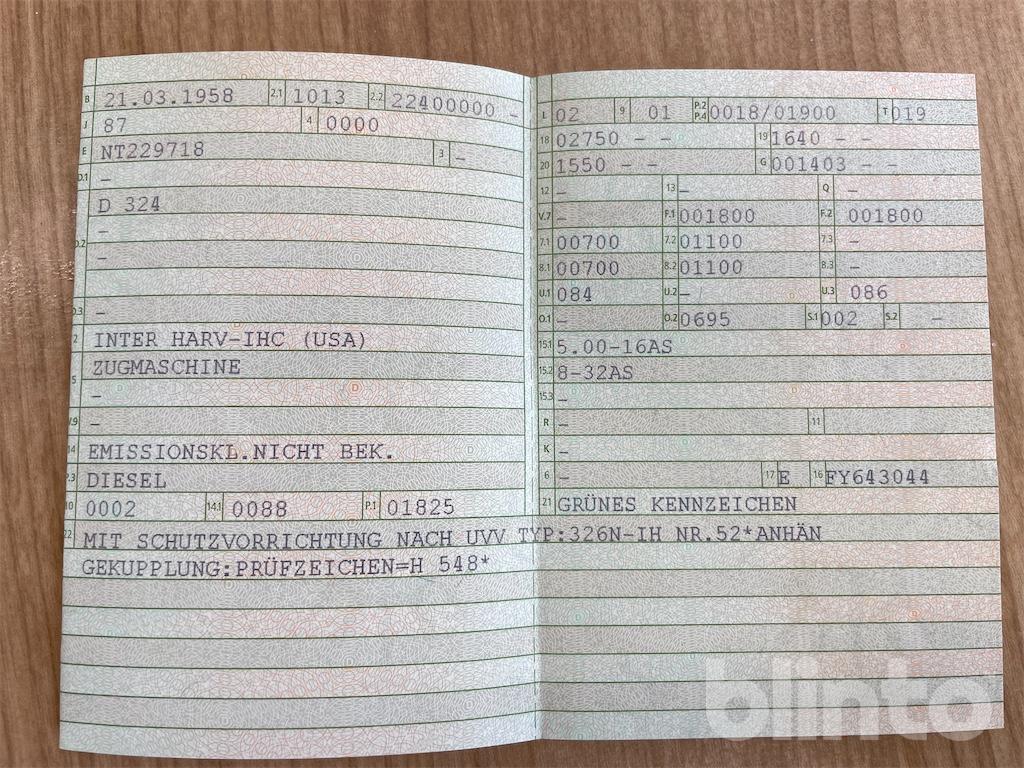 B 21.03.1958 2.1 1013 2.2 22400000 -
J 87 4 0000
E NT229718 3 -
D.1 -
D 324
D.2 -
-
D.3 -
2 INTER HARV-IHC (USA)
5 ZUGMASCHINE
-
V.9 -
14 EMISSIONSKL.NICHT BEK.
P.3 DIESEL
10 0002 14.1 0088 P.1 01825
L 02 9 01 P.2 P.4 0018/01900 T 019
18 02750 - - 19 1640 - -
20 1550 - - G 001403 - -
12 - 13 - Q -
V.7 - F.1 001800 F.2 001800
7.1 00700 7.2 01100 7.3 -
8.1 00700 8.2 01100 8.3 -
U.1 084 U.2 - U.3 086
O.1 - O.2 0695 S.1 002 S.2 -
15.1 5.00-16AS
15.2 8-32AS
15.3 -
R - 11
K -
6 - 17 E 16 FY643044
21 GRÜNES KENNZEICHEN
22 MIT SCHUTZVORRICHTUNG NACH UVV TYP:326N-IH NR.52*ANHÄN
GEKUPPLUNG:PRÜFZEICHEN=H 548*
blinto